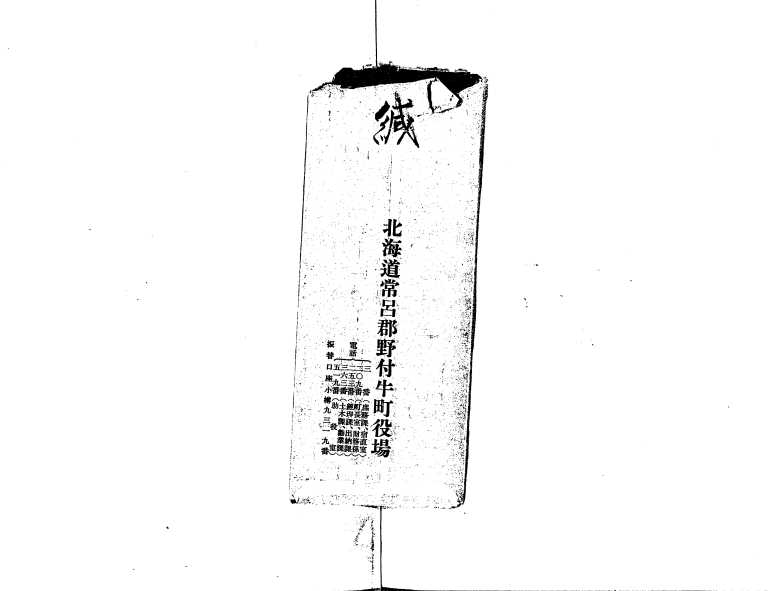 緘
北海道常呂郡野付牛町役場
電話
三番(庶務課、宿直室)
二〇九番(町長室、財務係)
二五三番(經理課、出納課)
三六三番(土木課、勸業課)
五一九番(助役室)
振替口座小樽九三一九番